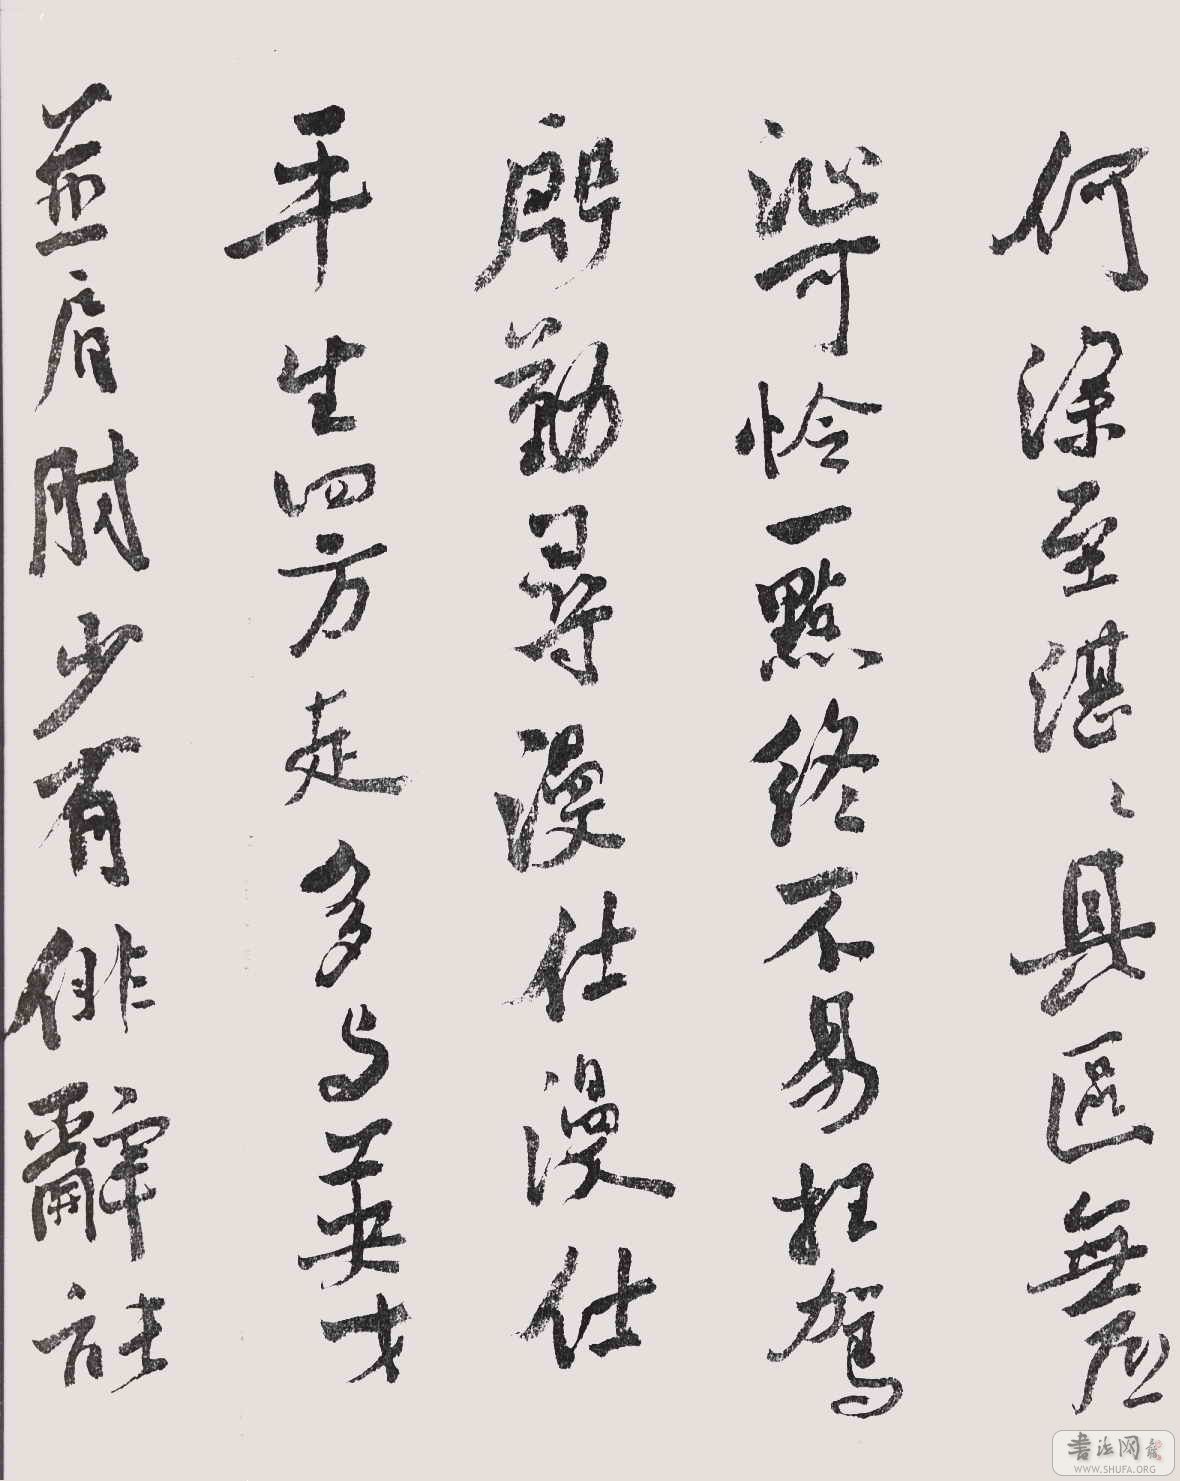 何深至湛ミ具區無底
沚可憐一點終不易枉駕
殷勤尋漫仕漫仕
平生四方走多與英才
並肩肘少有俳辭能
書法网
WWW.SHUFA.ORG